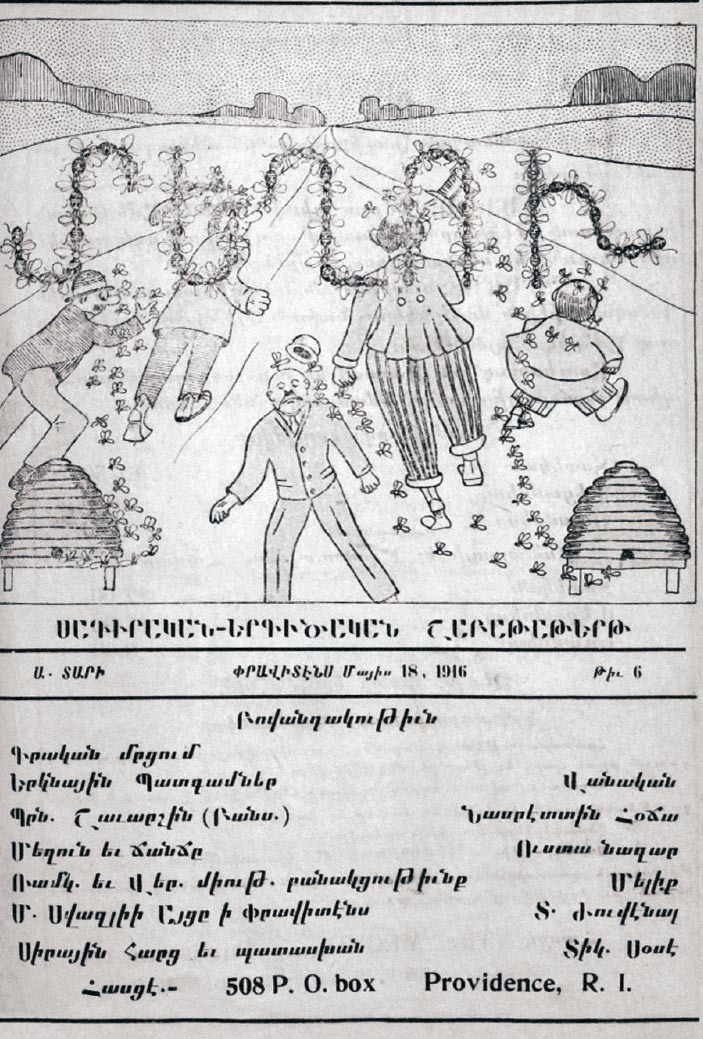 ՄԵՂՈՒ
ՍԱԴԻՐԱԿԱՆ-ԵՐԳԻԾԱԿԱՆ ՇԱԲԱԹԱԹԵՐԹ
Ա. ՏԱՐԻ ՓՐԱՎԻՏԷՆՍ Մայիս 18, 1916 Թիւ 6
Բովանդակութիւն
Գրական մրցում
Երկնային Պատգամներ Վանական
Պրն. Շաւարշին (Բանս.) Նասրէտտին Հօճա
Մեղուն եւ ճանճը Ուստա նազար
Ռամկ. եւ Վեր. միութ. բանակցութիւնք Մելիք
Մ. Սվազլիի Այցը ի Փրավիտէնս Տ. Ժուվէնալ
Սիրային Հարց եւ պատասխան Տիկ. Սօսէ
Հասցէ.- 508 P. O. box Providence, R. I.